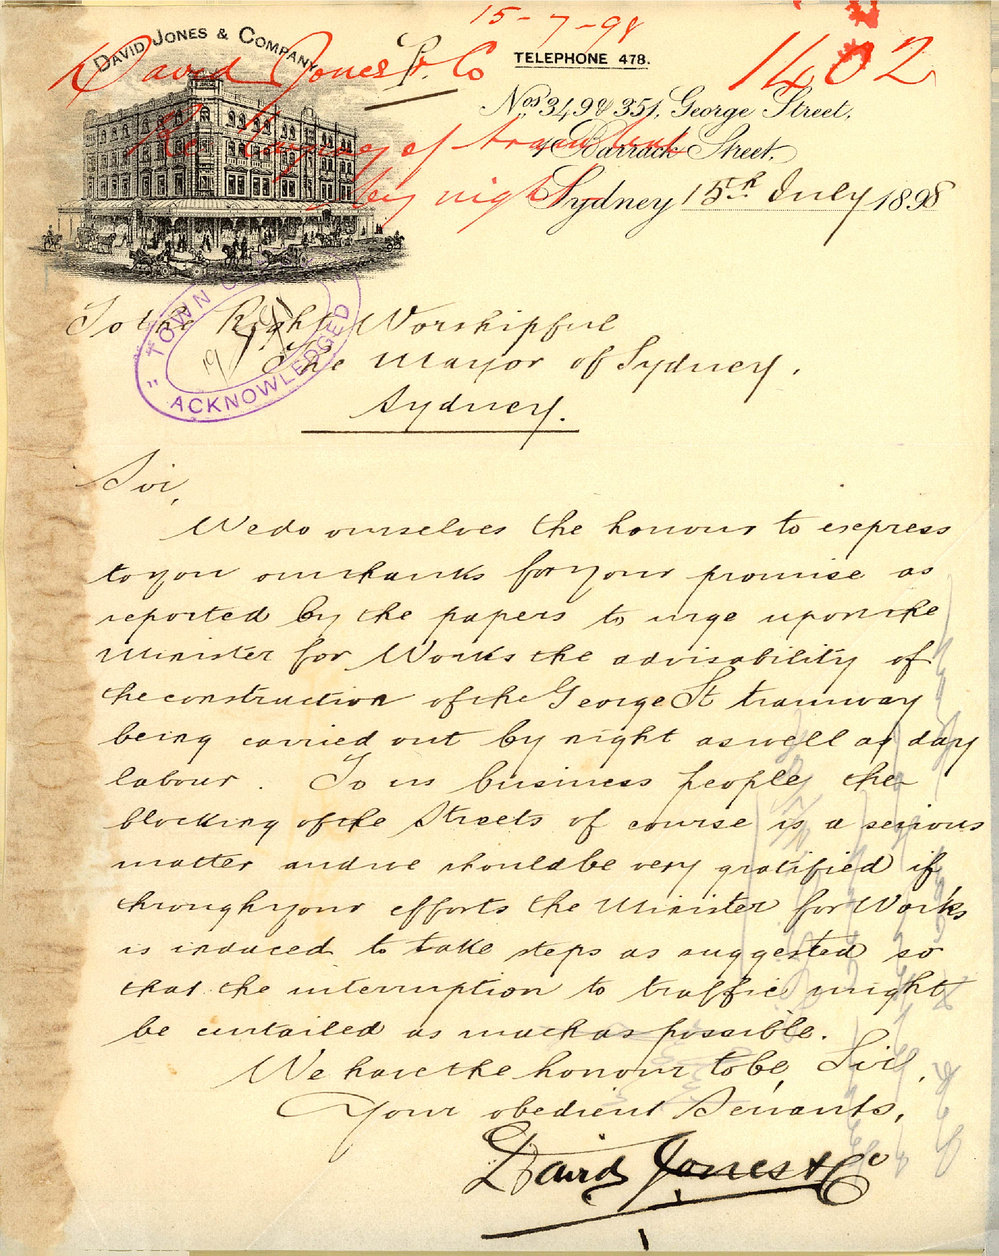 15-7-98
David Jones & Co
1402
Re laying of tram line
by night
DAVID JONES & COMPANY
TELEPHONE 478.
Nos 349 & 351, George Street,
& Barrack Street,
Sydney 15th July 1898
TOWN
ACKNOWLEDGED
To the Right Worshipful
The Mayor of Sydney,
Sydney.
Sir,
We do ourselves the honour to express
to you our thanks for your promise as
reported by the papers to urge upon the
Minister for Works the advisability of
the construction of the George St tramway
being carried out by night as well as day
labour. To us business people the
blocking of the Streets of course is a serious
matter and we should be very gratified if
through your efforts the Minister for Works
is induced to take steps as suggested so
that the interruption to traffic might
be curtailed as much as possible.
We have the honour to be, Sir,
Your obedient Servants,
David Jones & Co